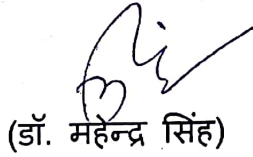 (डॉ. महेन्द्र सिंह)